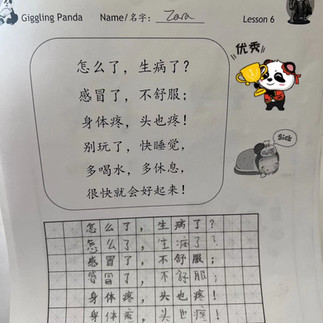 Giggling Panda Name/名字: Zara Lesson 6
优秀
怎么了，生病了？
感冒了，不舒服；
身体疼，头也疼！
别玩了，快睡觉，
多喝水，多休息，
很快就会好起来！
Sick
怎么了，生病了？
怎么了，生病了？
感冒了，不舒服；
感冒了，不舒服；
身体疼，头也疼！
身体疼，头也疼！